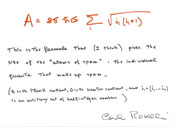 A = 8π ħG ∑ᵢ √jᵢ(jᵢ+1)
This is the formula that (I think) gives the
size of the "atoms of space". The individual
quanta that make up space.
(ħ is the Planck constant, G is the Newton constant, and
is an arbitrary set of half-integer numbers)
Carlo Rovelli